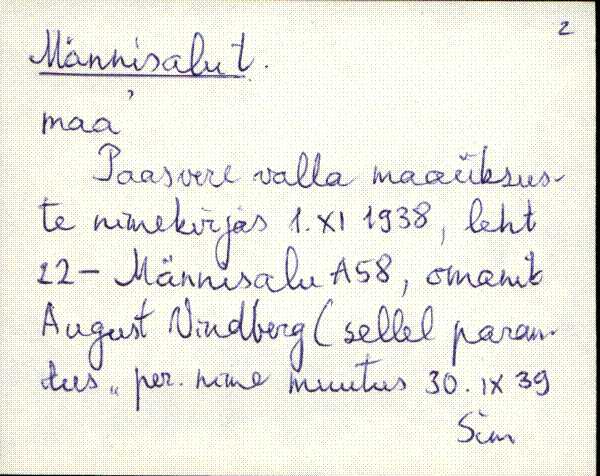 2
Männisalu t.
maa'
Paasvere valla maaüksus-
te nimekirjas 1. XI 1938, leht
22 – Männisalu A58, omanik
August Vindberg (sellel paran-
dus „ per. nime muutus 30. IX 39
Sim